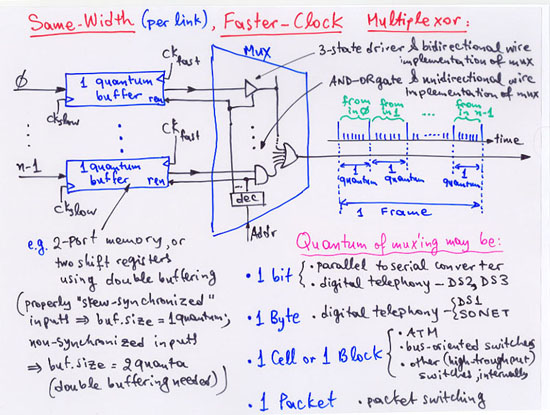 Same-Width (per link), Faster-Clock Multiplexor:
ck fast
Mux
3-state driver & bidirectional wire
implementation of mux
AND-OR gate & unidirectional wire
implementation of mux
0
1 quantum
buffer
ren
ck slow
from in 0
from in 1
...
from in n-1
time
1 quantum
1 quantum
1 quantum
1 Frame
ck fast
n-1
1 quantum
buffer
ren
ck slow
dec
Addr
e.g. 2-port memory, or
two shift registers
using double buffering
(properly "skew-synchronized"
inputs ⇒ buf.size = 1 quantum;
non-synchronized inputs
⇒ buf.size = 2 quanta
(double buffering needed))
Quantum of mux'ing may be:
• 1 bit { • parallel to serial converter
• digital telephony – DS2, DS3
• 1 Byte • digital telephony – { DS1
SONET
• 1 Cell or 1 Block { • ATM
• bus-oriented switches
• other (high-troughput)
switches internally
• 1 Packet • packet switching